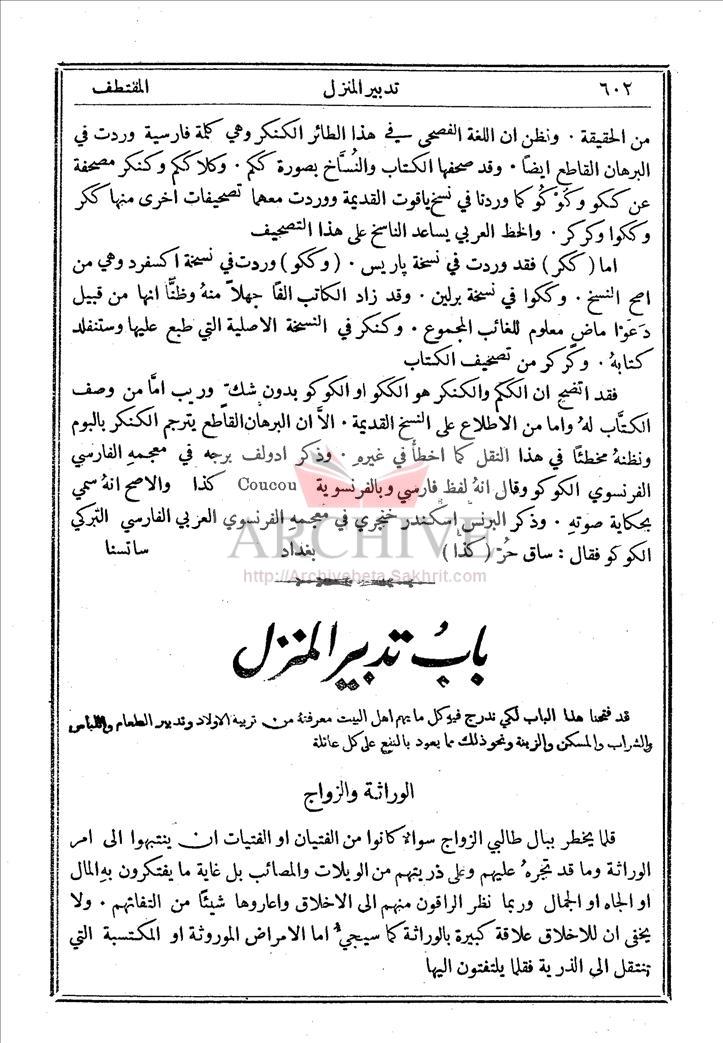 ٦٠٢ تدبير المنزل المقتطف
من الحقيقة . ونظن ان اللغة الفصحى في هذا الطائر الكنكر وهي كلمة فارسية وردت في
البرهان القاطع ايضاً . وقد صحفها الكتاب والنُسَّاخ بصورة ككم . وكلا ككم وكنكر مصحفة
عن ككو وكُوْكُو كما وردتا في نسخ ياقوت القديمة ووردت معهما تصحيفات اخرى منها ككر
وككوا وكركر . والخط العربي يساعد الناسخ على هذا التصحيف
اما (ككر) فقد وردت في نسخة پاريس . (وككو) وردت في نسخة اكسفرد وهي من
اصح النسخ . وككوا في نسخة برلين . وقد زاد الكاتب الفاً جهلاً منهُ وظنًّا انها من قبيل
دَعَوْا ماضٍ معلوم للغائب المجموع . وكنكر في النسخة الاصلية التي طبع عليها وستنفلد
كتابهُ . وكركر من تصحيف الكتاب
فقد اتضح ان الككم والكنكر هو الككو او الكوكو بدون شك وريب امَّا من وصف
الكتَّاب لهُ واما من الاطلاع على النسخ القديمة . الاَّ ان البرهان القاطع يترجم الكنكر بالبوم
ونظنهُ مخطئاً في هذا النقل كما اخطأ في غيرهِ . وذكر ادولف برجه في معجمهِ الفارسي
الفرنسوي الكوكو وقال انهُ لفظ فارسي وبالفرنسوية Coucou كذا والاصح انهُ سمي
بحكاية صوتهِ . وذكر البرنس اسكندر خنجري في معجمهِ الفرنسوي العربي الفارسي التركي
الكوكو فقال : ساق حُرّ (كذا) بغداد ساتسنا
ARCHIVE
http://Archivebeta.Sakhrit.com
بابُ تدبير المنزل
قد فتحنا هذا الباب لكي ندرج فيهِ كل ما يهم اهل البيت معرفتهُ من تربية الاولاد وتدبير الطعام واللباس
والشراب والمسكن والزينة ونحو ذلك مما يعود بالنفع على كل عائلة
الوراثة والزواج
قلما يخطر ببال طالبي الزواج سوالا كانوا من الفتيان او الفتيات ان ينتبهوا الى امر
الوراثة وما قد تجرهُ عليهم وعلى ذريتهم من الويلات والمصائب بل غاية ما يفتكرون بهِ المال
او الجاه او الجمال وربما نظر الراقون منهم الى الاخلاق واعاروها شيئاً من التفاتهم . ولا
يخفى ان للاخلاق علاقة كبيرة بالوراثة كما سيجيء اما الامراض الموروثة او المكتسبة التي
تنتقل الى الذرية فقلما يلتفتون اليها